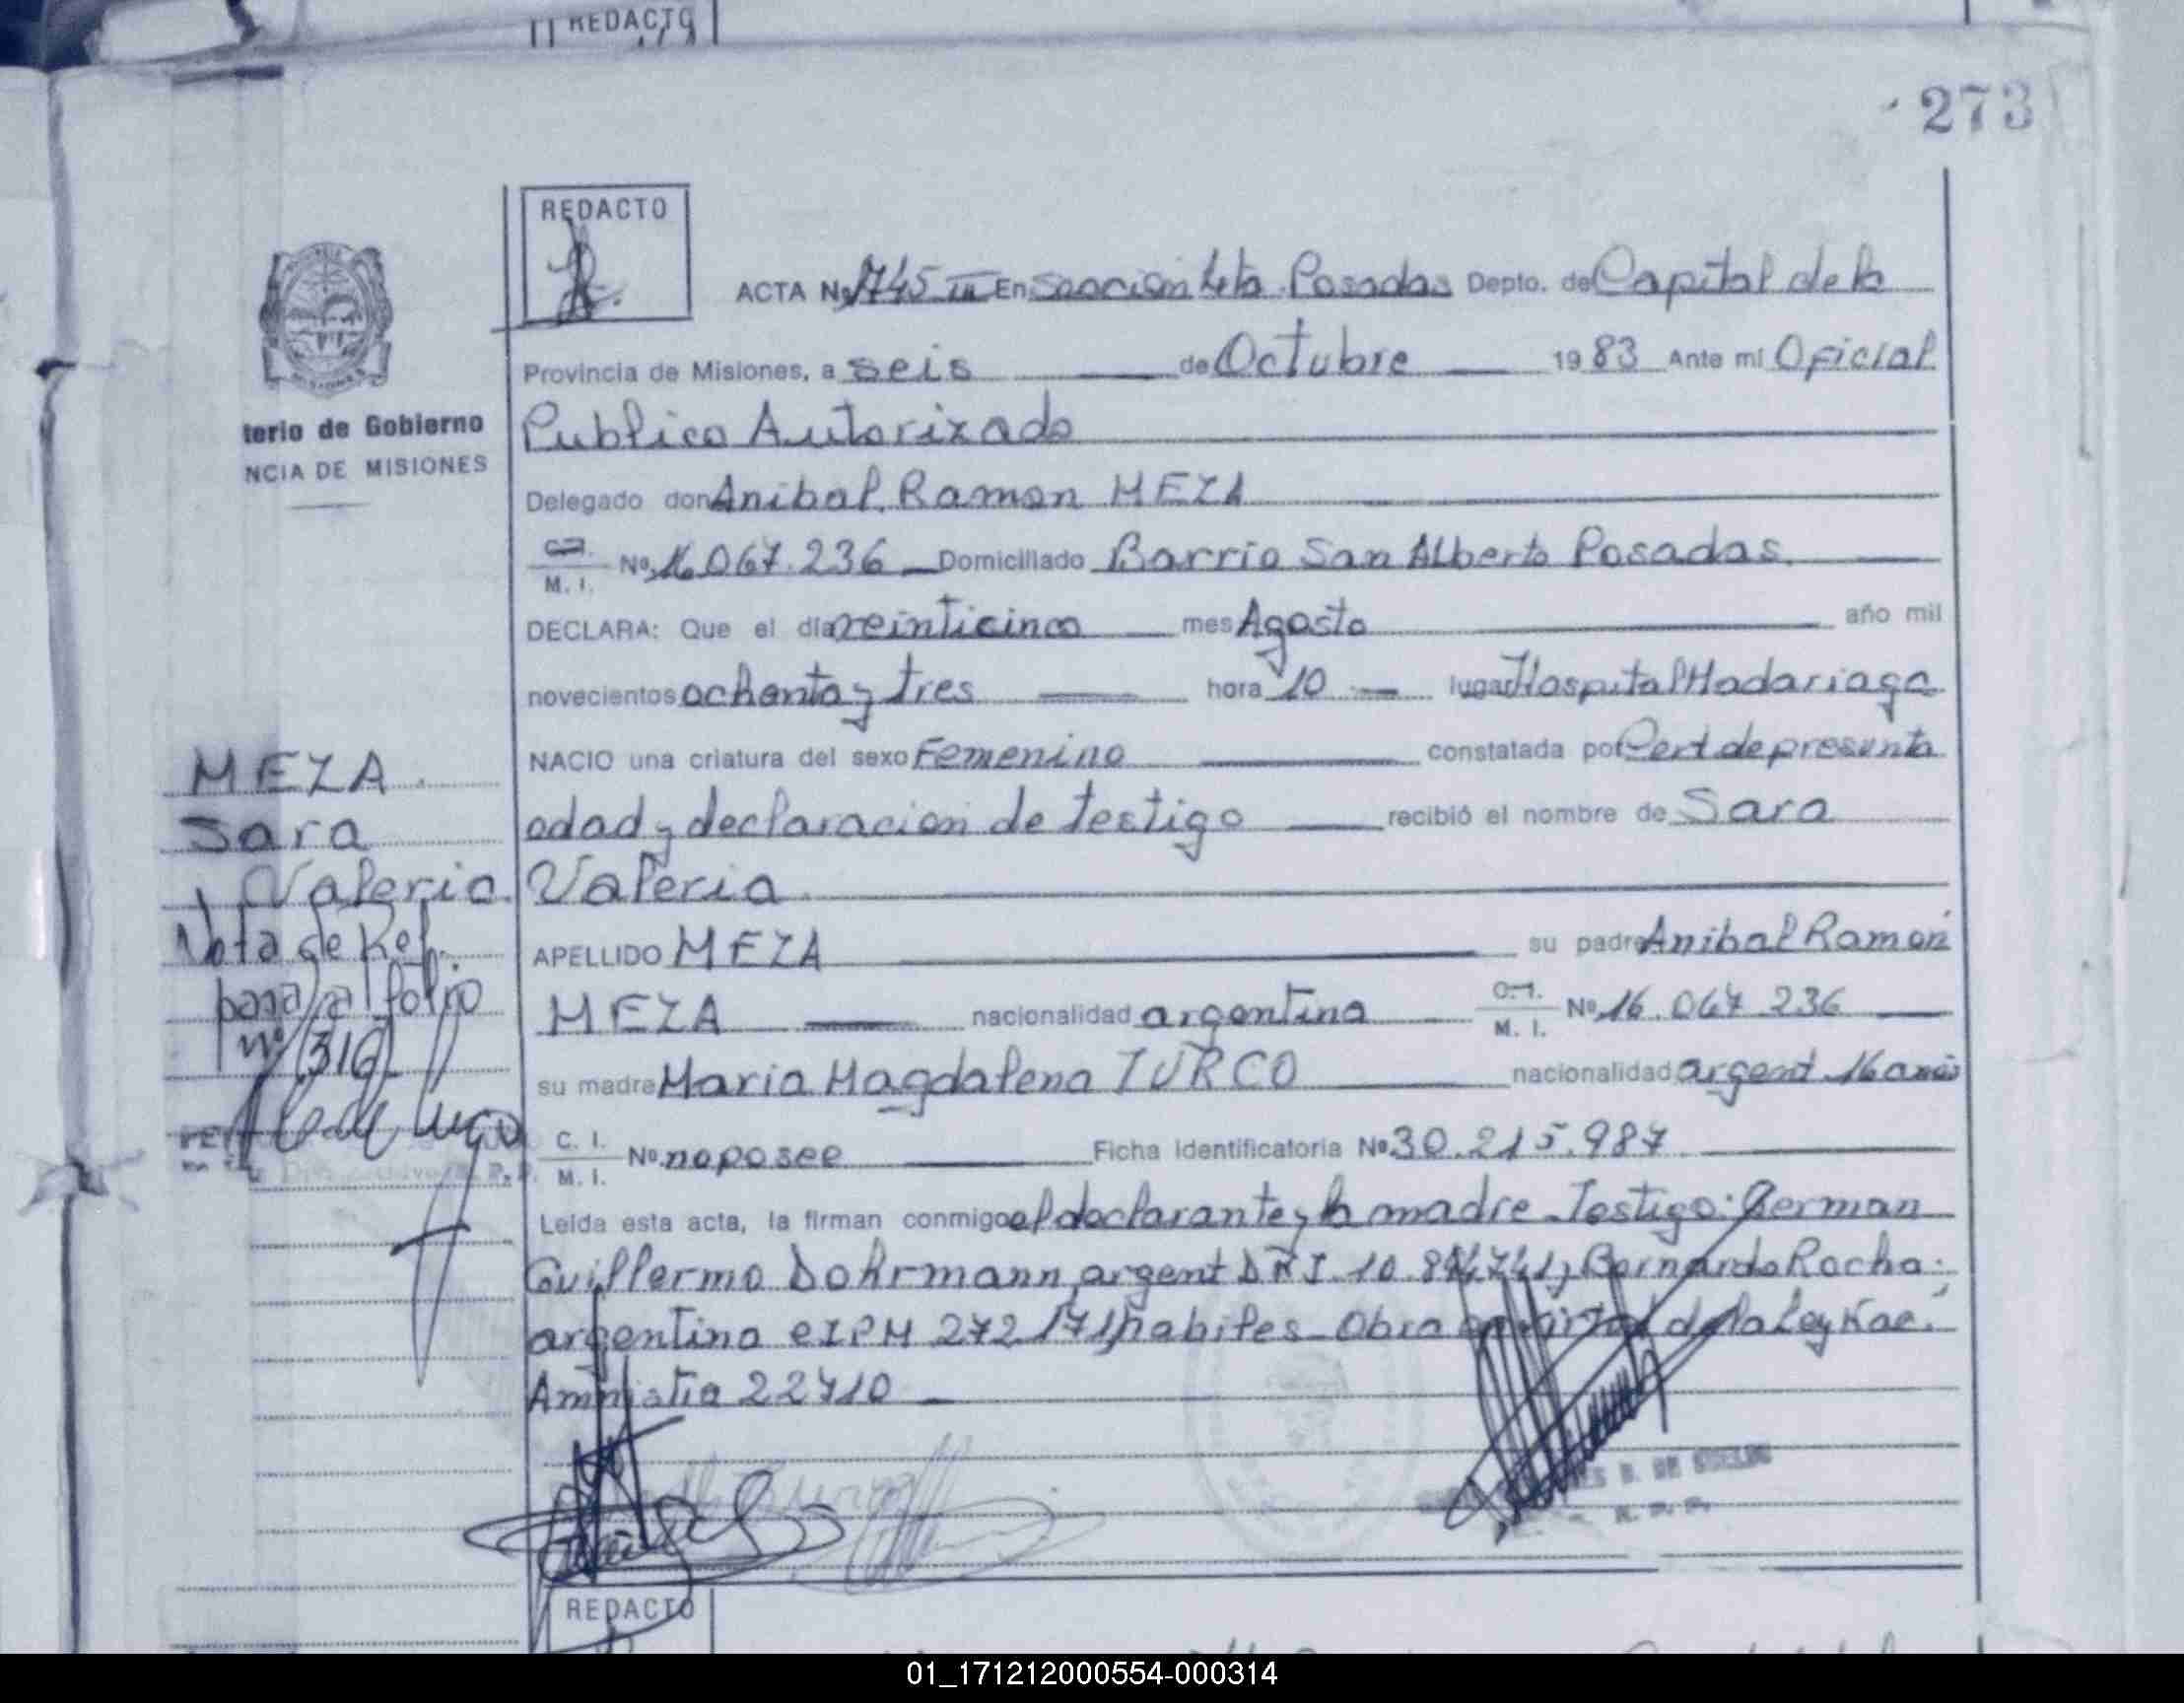 REDACTO
273
REDACTO
ACTA Nº 1745 III En Sección 4ta. Posadas Depto. de Capital de la
Provincia de Misiones, a seis de Octubre 1983 Ante mí Oficial
Publico Autorizado
terio de Gobierno
NCIA DE MISIONES
Delegado don Anibal Ramon MEZA
C.I. M. I. Nº 16.067.236 Domiciliado Barrio San Alberto Posadas.
DECLARA: Que el día veinticinco mes Agosto año mil
novecientos ochenta y tres hora 10 lugar Hospital Madariaga
NACIO una criatura del sexo Femenino constatada por Cert de presunta
edad y declaracion de testigo recibió el nombre de Sara
Valeria
APELLIDO MEZA su padre Anibal Ramón
MEZA nacionalidad argentina C.I. M. I. Nº 16.067.236
su madre Maria Magdalena TURCO nacionalidad argent 16 años
C. I. M. I. Nº no posee Ficha Identificatoria Nº 30.215.987
Leída esta acta, la firman conmigo el declarante y la madre Testigo: German
Guillermo Dohrmann argent DNI 10.8 y Bernardo Rocha
argentino CIPM 272171 habiles Obra de la Ley Nac.
Amnistia 22710
MEZA
Sara
Valeria
Nota de Ref.
pasa al folio
nº 316
S. DE SUELDO
R. P. P.
REDACTO
01_171212000554-000314